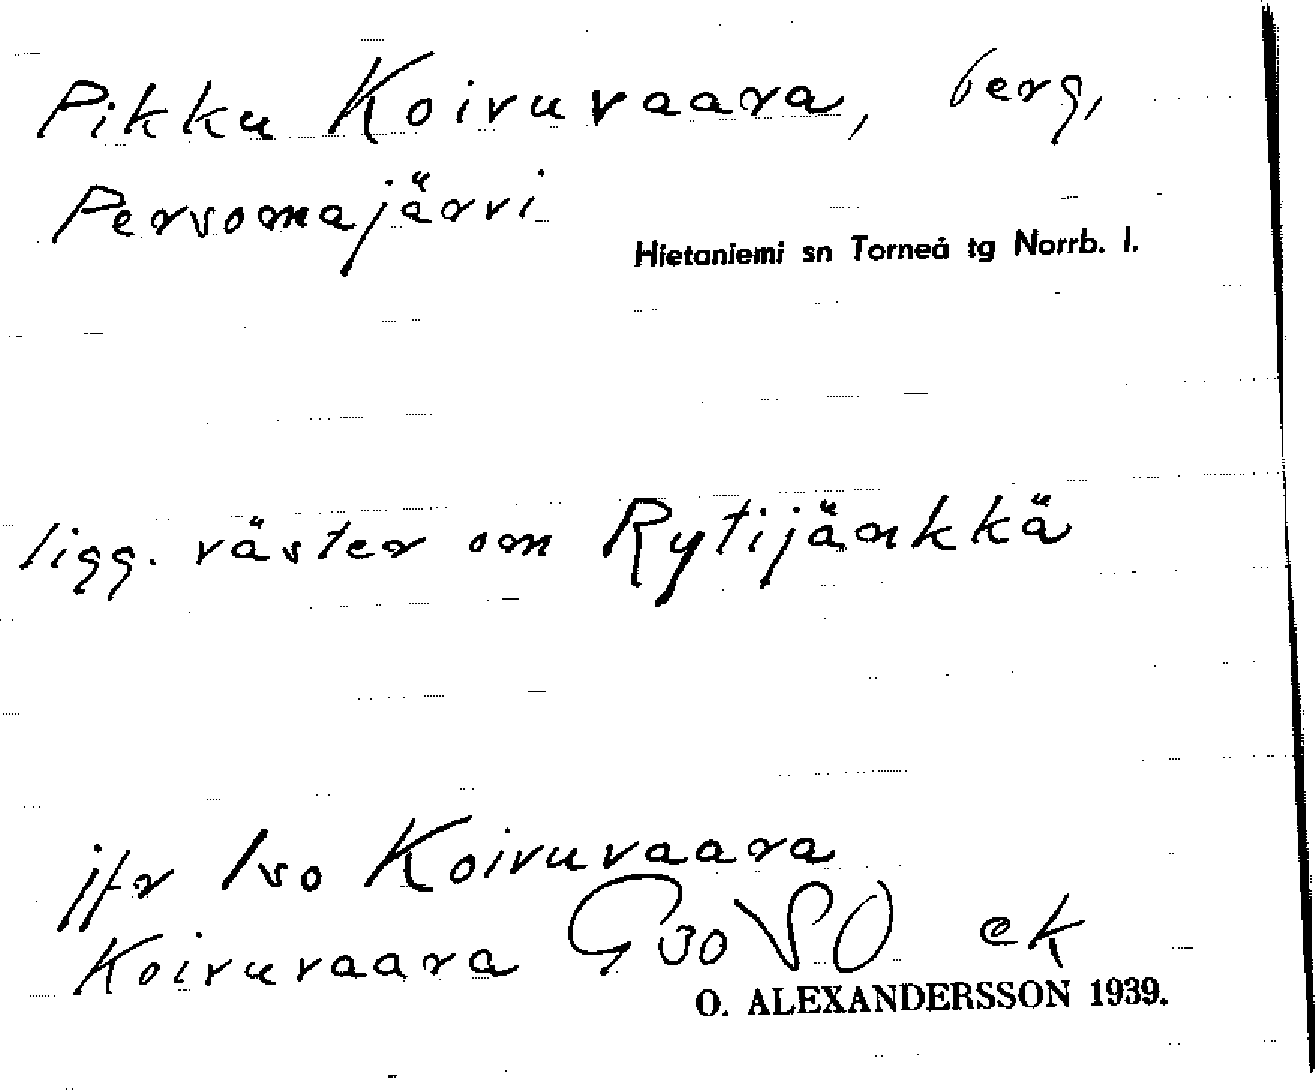 Pikku Koivuvaara, berg,
Persomajärvi
Hietaniemi sn Torneå tg Norrb. l.
ligg. väster om Rytijänkkä
jfr Iso Koivuvaara
Koivuvaara ek
O. ALEXANDERSSON 1939.